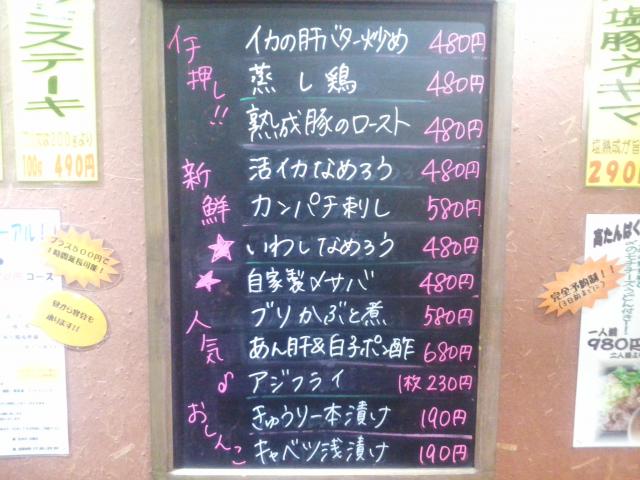 ステーキ
100g 490円
プラス500円で
1時間延長可能!
コース
昼から宴会も
承ります!!
イチ押し!!
イカの肝バター炒め 480円
蒸し鶏 480円
熟成豚のロースト 480円
新鮮
活イカなめろう 480円
カンパチ刺し 580円
いわしなめろう 480円
自家製〆サバ 480円
人気
ブリかぶと煮 580円
あん肝&白子ポン酢 680円
アジフライ 1枚230円
おしんこ
きゅうり一本漬け 190円
キャベツ浅漬け 190円
塩豚ネギマ
塩熟成が旨
290円
高たんぱく
完全予約制!!
(3日前までに)
一人前
980円